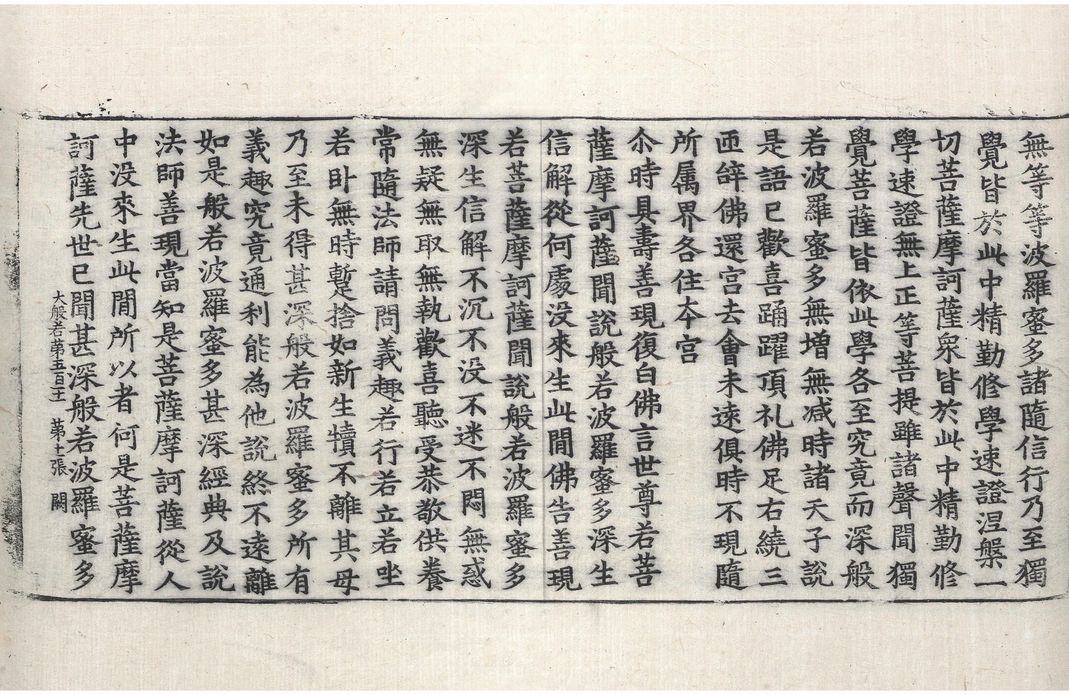 無等等波羅蜜多諸隨信行乃至獨
覺皆於此中精勤修學速證涅槃一
切菩薩摩訶薩衆皆於此中精勤修
學速證無上正等菩提雖諸聲聞獨
覺菩薩皆依此學各至究竟而深般
若波羅蜜多無增無减時諸天子說
是語已歡喜踊躍頂礼佛足右繞三
匝辤佛還宫去會未遠俱時不現隨
所属界各住夲宫
尒時具壽善現復白佛言世尊若菩
薩摩訶薩聞說般若波羅蜜多深生
信解從何處没來生此閒佛告善現
若菩薩摩訶薩聞說般若波羅蜜多
深生信解不沉不没不迷不悶無惑
無疑無取無執歡喜聽受恭敬供養
常隨法師請問義趣若行若立若坐
若卧無時蹔捨如新生犢不離其母
乃至未得甚深般若波羅蜜多所有
義趣究竟通利能為他說終不遠離
如是般若波羅蜜多甚深經典及說
法師善現當知是菩薩摩訶薩從人
中没來生此閒所以者何是菩薩摩
訶薩先世已聞甚深般若波羅蜜多
大般若第五百十 第十張 闕